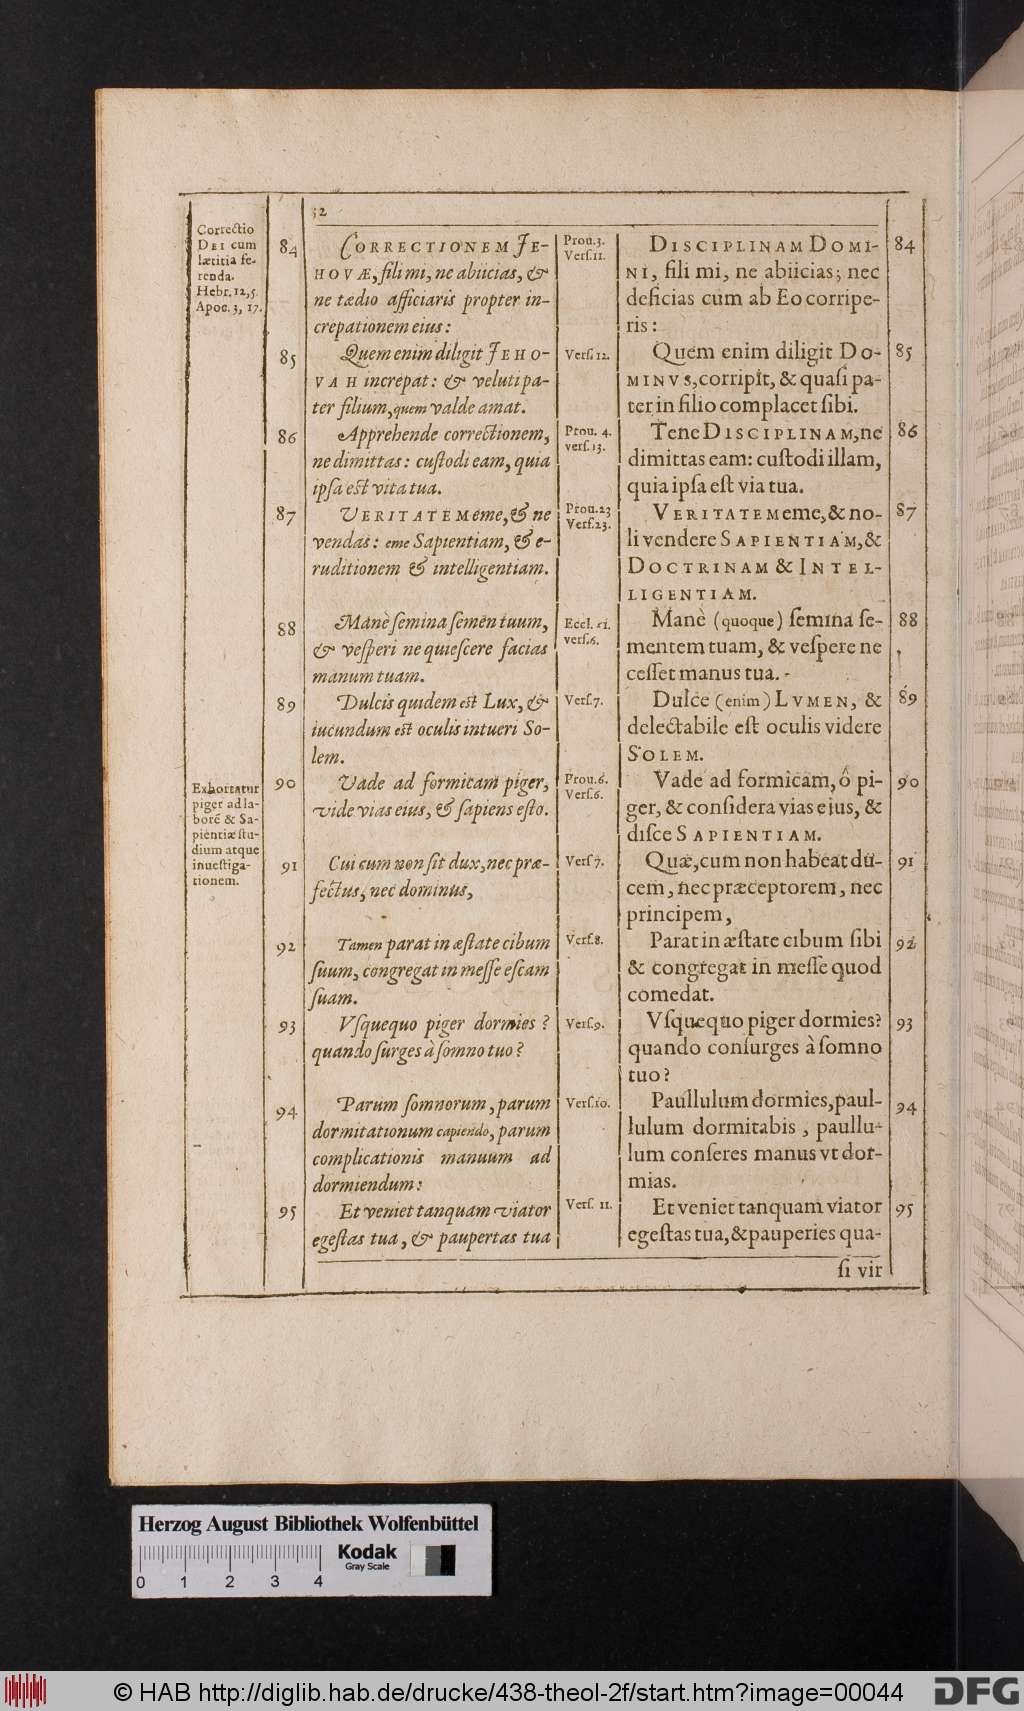 32
Correctio
DEI cum
lætitia fe-
renda.
Hebr. 12, 5.
Apoc. 3, 17.
84
CORRECTIONEM JE-
HOVÆ, fili mi, ne abiicias, &
ne tædio afficiaris propter in-
crepationem eius:
85
Quem enim diligit JEHO-
VAH increpat: & veluti pa-
ter filium, quem valde amat.
86
Apprehende correctionem,
ne dimittas: cuſtodi eam, quia
ipſa eſt vita tua.
87
VERITATEM eme, & ne
vendas: eme Sapientiam, & e-
ruditionem & intelligentiam.
88
Manè ſemina ſemen tuum,
& veſperi ne quieſcere facias
manum tuam.
89
Dulcis quidem eſt Lux, &
iucundum eſt oculis intueri So-
lem.
Exhortatur
piger ad la-
borẽ & Sa-
pientiæ ſtu-
dium atque
inueſtiga-
tionem.
90
Vade ad formicam piger,
vide vias eius, & ſapiens eſto.
91
Cui cum non ſit dux, nec præ-
fectus, nec dominus,
92
Tamen parat in æſtate cibum
ſuum, congregat in meſſe eſcam
ſuam.
93
Vſquequo piger dormies?
quando ſurges à ſomno tuo?
94
Parum ſomnorum, parum
dormitationum capiendo, parum
complicationis manuum ad
dormiendum:
95
Et veniet tanquam viator
egeſtas tua, & paupertas tua
Prou. 3.
Verſ. 11.
Verſ. 12.
Prou. 4.
verſ. 13.
Prou. 23
Verſ. 23.
Eccl. 11.
verſ. 6.
Verſ. 7.
Prou. 6.
Verſ. 6.
Verſ 7.
Verſ. 8.
Verſ. 9.
Verſ. 10.
Verſ. 11.
DISCIPLINAM DOMI-
NI, fili mi, ne abiicias; nec
deficias cum ab Eo corripe-
ris:
84
Quem enim diligit DO-
MINVS, corripit, & quaſi pa-
ter in filio complacet ſibi.
85
Tene DISCIPLINAM, ne
dimittas eam: cuſtodi illam,
quia ipſa eſt via tua.
86
VERITATEM eme, & no-
li vendere SAPIENTIAM, &
DOCTRINAM & INTEL-
LIGENTIAM.
87
Manè (quoque) ſemina ſe-
mentem tuam, & veſpere ne
ceſſet manus tua.
88
Dulce (enim) LVMEN, &
delectabile eſt oculis videre
SOLEM.
89
Vade ad formicam, ô pi-
ger, & conſidera vias eius, &
diſce SAPIENTIAM.
90
Quæ, cum non habeat dū-
cem, nec præceptorem, nec
principem,
91
Parat in æſtate cibum ſibi
& congregat in meſſe quod
comedat.
92
Vſquequo piger dormies?
quando conſurges à ſomno
tuo?
93
Paullulum dormies, paul-
lulum dormitabis, paullu-
lum conſeres manus vt dor-
mias.
94
Et veniet tanquam viator
egeſtas tua, & pauperies qua-
95
ſi vir
Herzog August Bibliothek Wolfenbüttel
Kodak
Gray Scale
0 1 2 3 4
© HAB http://diglib.hab.de/drucke/438-theol-2f/start.htm?image=00044
DFG